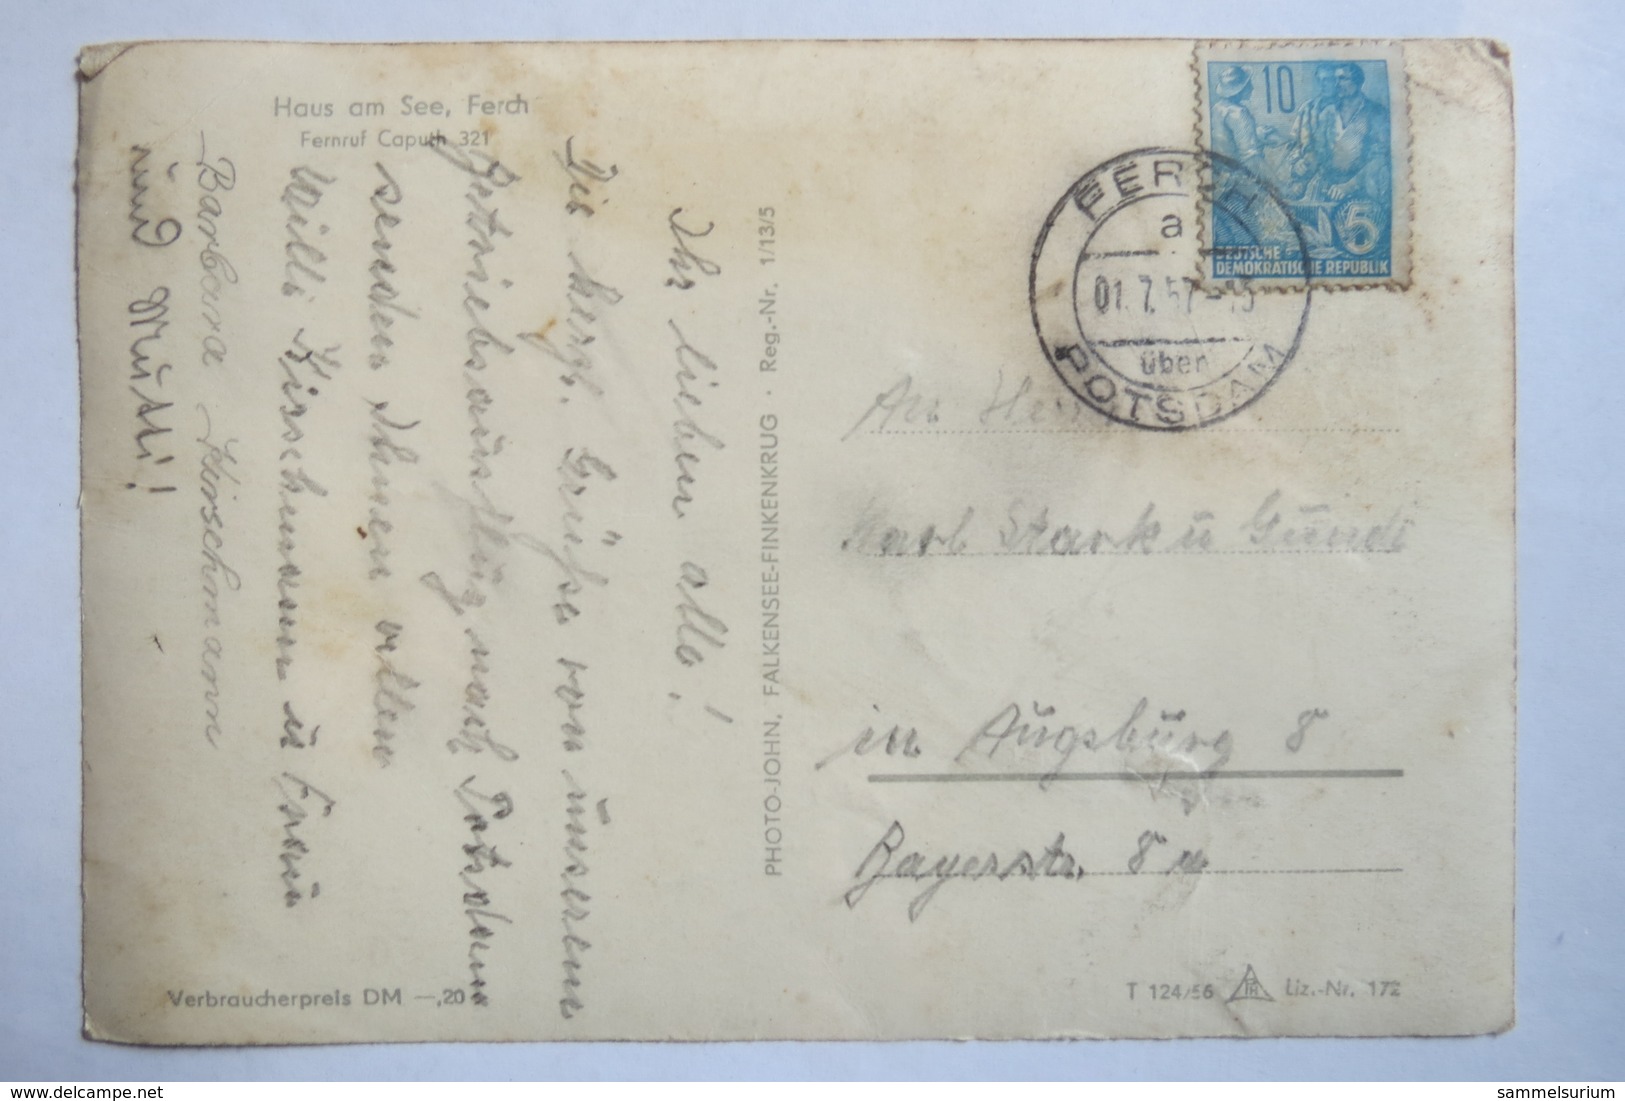 Haus am See, Ferch
Fernruf Caputh 321
Ihr lieben alle!
Die herzl. Grüße von unserem
Betriebsausflug nach Potsdam
senden Ihnen allen
Willi Hirschmann u Erni
Barbara Hirschmann
und Mutti!
PHOTO-JOHN, FALKENSEE-FINKENKRUG · Reg.-Nr. 1/13/5
10
5
DEUTSCHE
DEMOKRATISCHE REPUBLIK
FERCH
a
01.7.57-15
über
POTSDAM
An
Karl Stark u Gundi
in Augsburg 8
Bayerstr. 8
Verbraucherpreis DM —,20
T 124/56 PH Liz.-Nr. 172
delcampe.net
sammelsurium